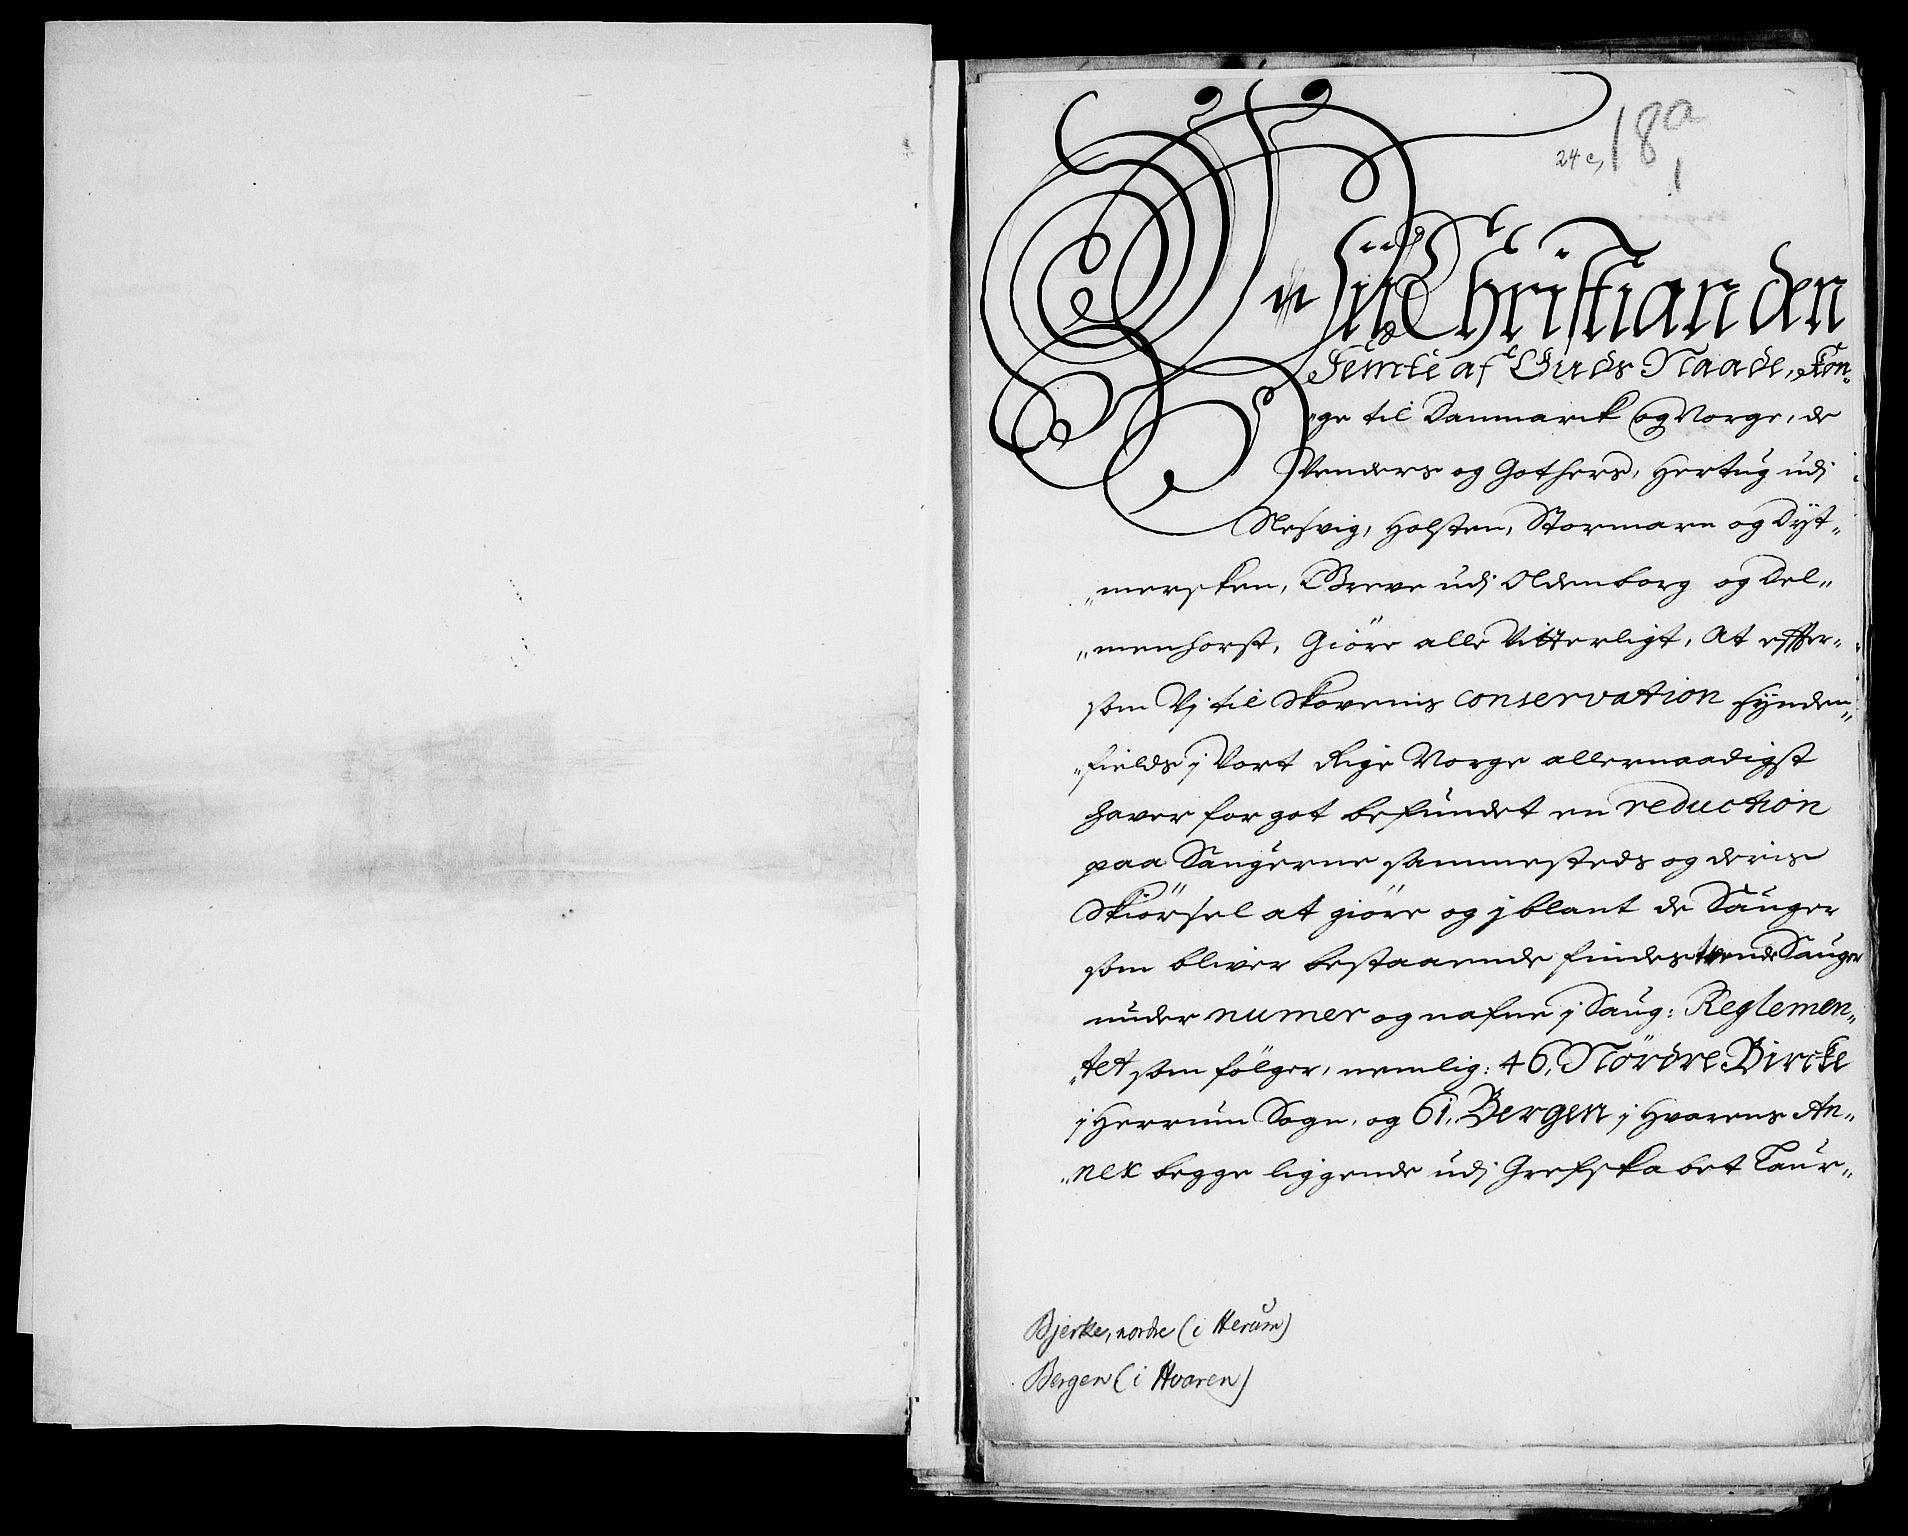 24 c,
18 a
1
Wii Christian den
Femte af Guds Naade, Kon„
„ge til Danmarck og Norge, de
Venders og Gothers, Hertug udj
Slesvig, Holsten, Stormarn og Dyt„
„mersken, Greve udj Oldenborg og Del„
„menhorst, Giöre alle Vitterligt, At effter„
som Vj til Skovenis conservation Synden„
„fields i Vort Rige Norge allernaadigst
haver for got befundet en reduction
paa Saugerne sammesteds og deris
Skiörsel at giöre og jblant de Sauger
som bliver bestaaende findes tvende Sauger
under numer og nafne j Saug: Reglemen„
„tet som fölger, nemlig: 46. Nördre Bircke
j Herrum Sogn, og 61. Bergen j Hvarens An„
„nex begge liggende udj Grefskabet Laur„
Bjerke, nordre (i Herum)
Bergen (i Hvaren)